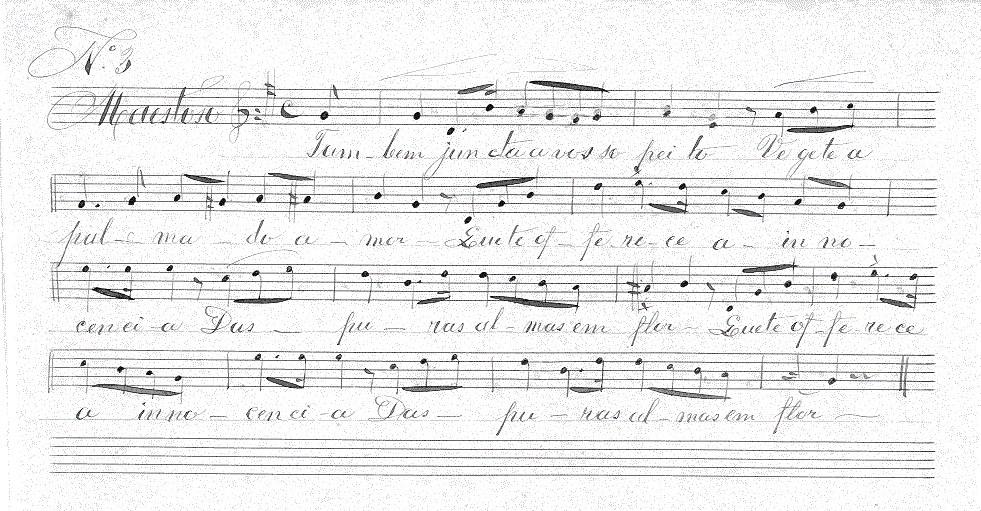 Nº 3
Maestoso
Tam-bem jun cta a vos so pei to Ve ge te a
pal- ma - do a - mor - Que te of - fe - re - ce a - in no -
cen ci - a Das - pu - ras al - mas em flor - Que te of - fe - re ce
a in no - cen ci - a Das - pu - ras al - mas em flor -